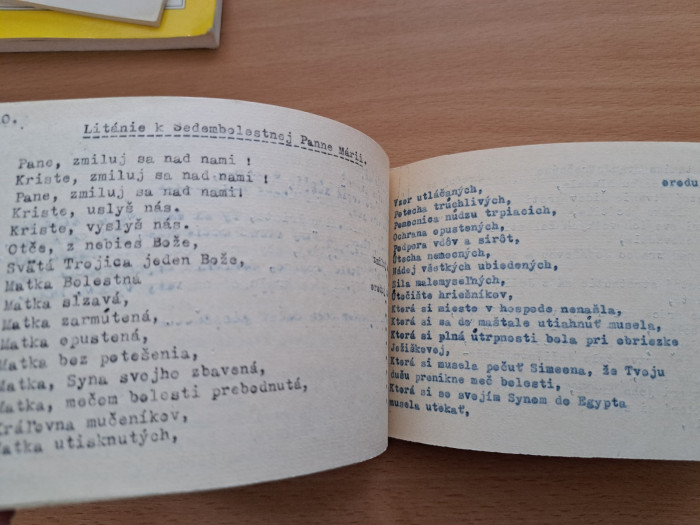 Litánie k Sedembolestnej Panne Márii.
Pane, zmiluj sa nad nami !
Kriste, zmiluj sa nad nami !
Pane, zmiluj sa nad nami!
Kriste, uslyš nás.
Kriste, vyslyš nás.
Otče, z nebies Bože,
Svätá Trojica jeden Bože,
Matka Bolestná
Matka slzavá,
Matka zarmútená,
Matka opustená,
Matka bez potešenia,
Matka, Syna svojho zbavená,
Matka, mečom bolesti prebodnutá,
Kráľovna mučeníkov,
Matka utisknutých,
orodu
Vzor utláčaných,
Potecha truchlivých,
Pomocnica núdzu trpiacich,
Ochrana opustených,
Podpora vdôv a sirôt,
Útecha nemocných,
Nádej všetkých ubiedených,
Sila malomyseľných,
Útočište hriešnikov,
Ktorá si miesto v hospode nenašla,
Ktorá si sa do maštale utiahnúť musela,
Ktorá si plná útrpnosti bola pri obriezke
Ježiškovej,
Ktorá si musela počuť Simeona, že Tvoju
dušu prenikne meč bolesti,
Ktorá si so svojím Synom do Egypta
musela utekať,